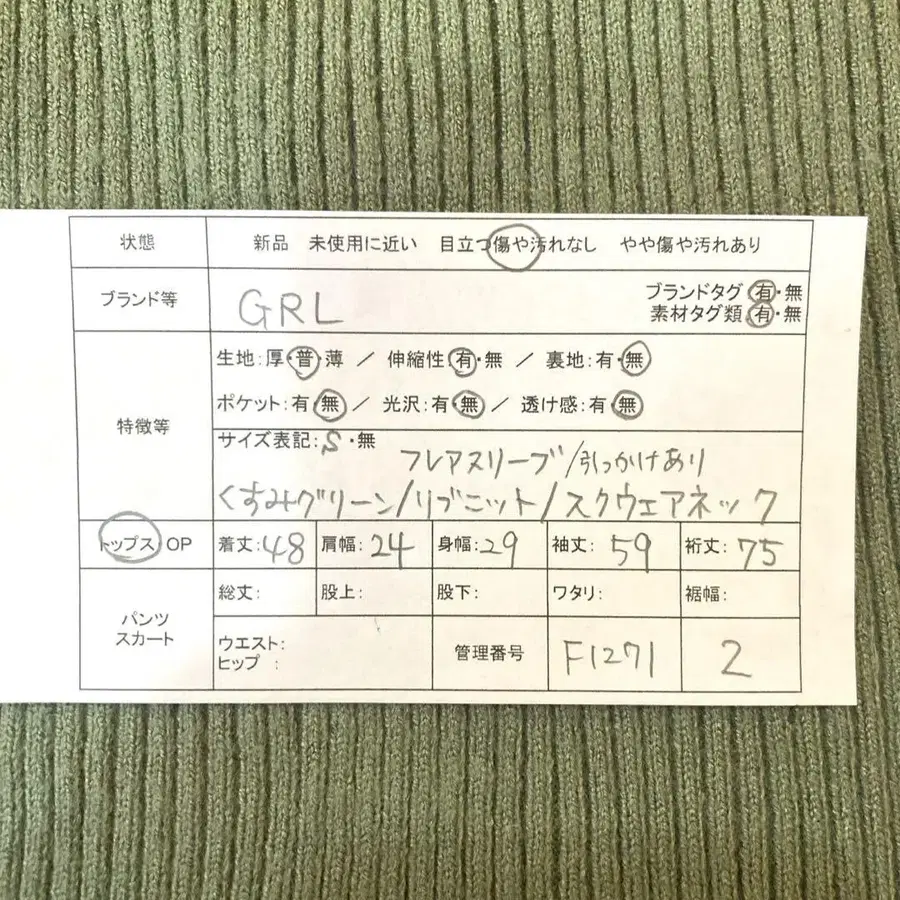 状態 新品 未使用に近い 目立つ傷や汚れなし やや傷や汚れあり
ブランド等 GRL ブランドタグ 有・無
素材タグ類 有・無
特徴等 生地:厚・普・薄 / 伸縮性:有・無 / 裏地:有・無
ポケット:有・無 / 光沢:有・無 / 透け感:有・無
サイズ表記:S・無
フレアスリーブ/引っかけあり
くすみグリーン/リブニット/スクウェアネック
トップス OP 着丈:48 肩幅:24 身幅:29 袖丈:59 裄丈:75
パンツ スカート 総丈: 股上: 股下: ワタリ: 裾幅:
ウエスト:
ヒップ : 管理番号 F1271 2